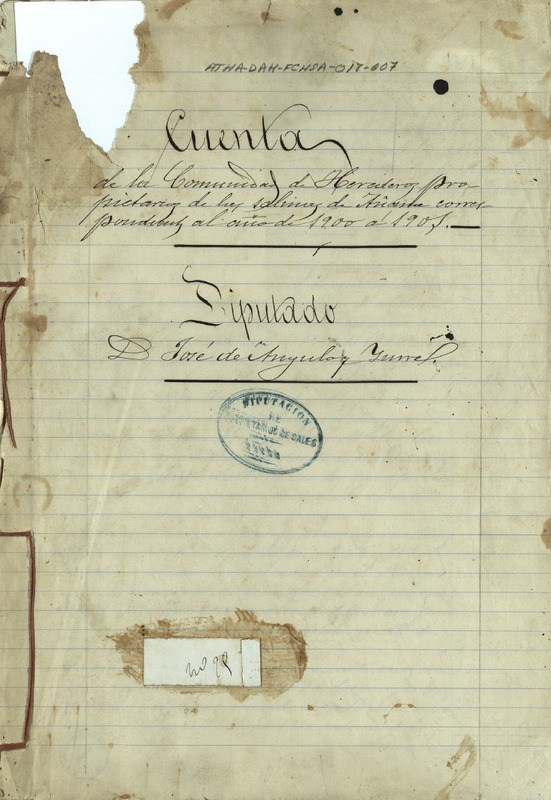 ATHA-DAH-FCHSA-018-007
Cuenta
de la Comunidad de Herederos pro-
pietarios de las salinas de Añana corres-
pondiente al año de 1900 a 1901.
Diputado
D José de Angulo y
DIPUTACION
DE
PROPIETARIOS DE SALES
AÑANA
Nº 99